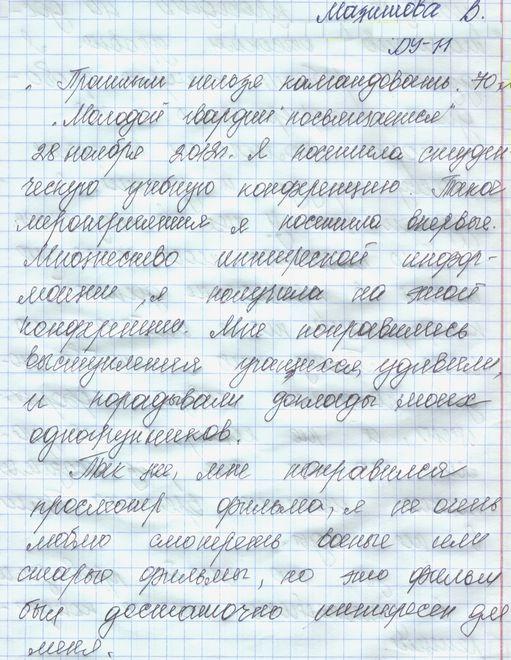 Мазитова В.
ДУ-11
"Прошлым нельзя командовать. 70л
"Молодой гвардии" посвящается"
28 ноября 2012г. Я посетила студен
ческую учебную конференцию. Такое
мероприятия я посетила впервые.
Множество интиресной инфор-
мации, я получила на этой
конференции. Мне понравились
выступления учащихся, удивили,
и порадывали доклады моих
одногрупников.
Так же, мне понравился
просмотр фильма, я не очень
люблю смотереть военые или
старые фильмы, но это фильм
был достаточно интиресен для
меня.